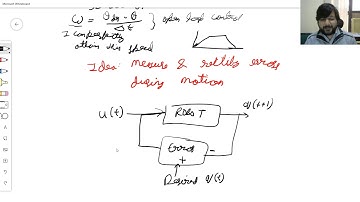 Microsoft Whiteboard
ω = θdes - θ / Δt } open loop control
I
others this speed
Idea: measure & rectify errors
during motion
u(t)
ROBOT
q(t+1)
Error
+
-
Desired q(t)